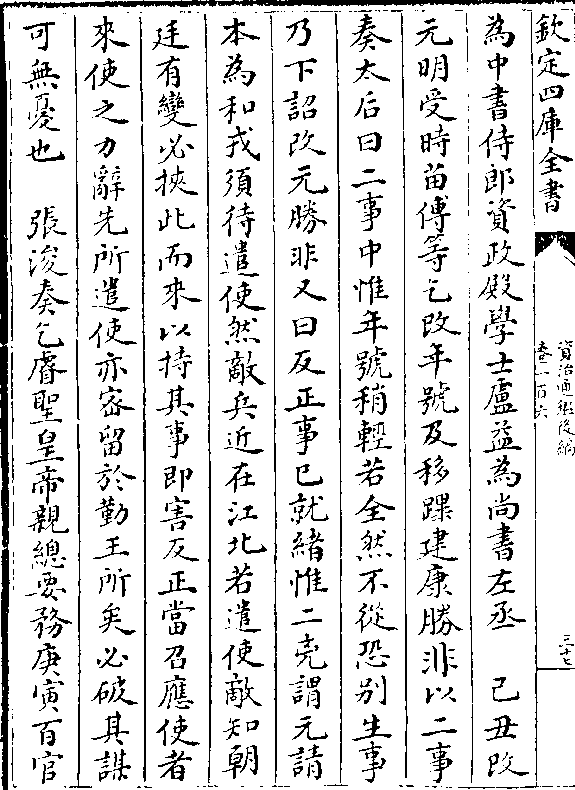 欽定四庫全書
資治通鑑後編
卷一百六
三十七
為中書侍郎資政殿學士盧益為尚書左丞　己丑改
元明受時苗傅等乞改年號及移蹕建康勝非以二事
奏太后曰二事中惟年號稍輕若全然不從恐别生事
乃下詔改元勝非又曰反正事已就緒惟二兇謂元請
本為和戎須待遣使然敵兵近在江北若遣使敵知朝
廷有變必挾此而來以持其事即害反正當召應使者
來使之力辭先所遣使亦宻留於勤王所矣必破其謀
可無憂也　張浚奏乞睿聖皇帝親總要務庚寅百官